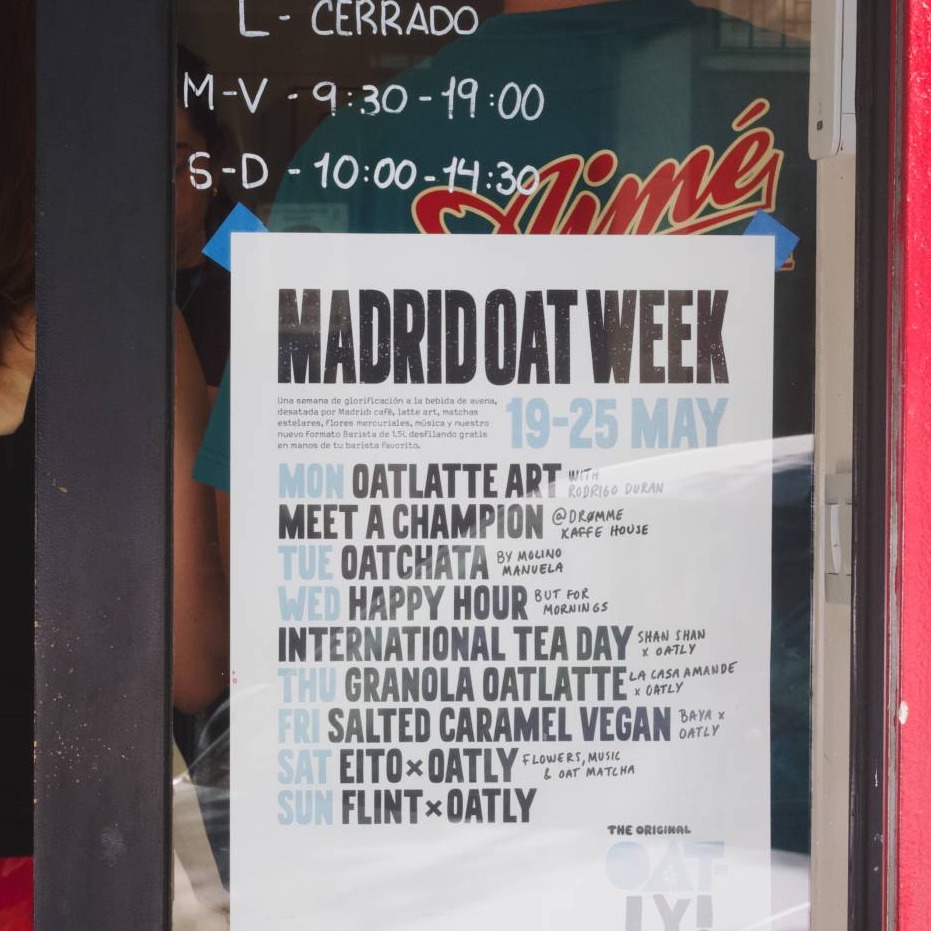 L - CERRADO
M-V - 9:30-19:00
S-D - 10:00-14:30
Aimé
MADRID OAT WEEK
Una semana de glorificación a la bebida de avena,
desatada por Madrid: café, latte art, matchas
estelares, flores mercuriales, música y nuestro
nuevo formato Barista de 1.5L desfilando gratis
en manos de tu barista favorito.
19-25 MAY
MON OATLATTE ART WITH RODRIGO DURAN
MEET A CHAMPION @DRØMME KAFFE HOUSE
TUE OATCHATA BY MOLINO MANUELA
WED HAPPY HOUR BUT FOR MORNINGS
INTERNATIONAL TEA DAY SHAN SHAN x OATLY
THU GRANOLA OATLATTE LA CASA AMANDE x OATLY
FRI SALTED CARAMEL VEGAN BAYA x OATLY
SAT EITO×OATLY FLOWERS, MUSIC & OAT MATCHA
SUN FLINT×OATLY
THE ORIGINAL
OAT-
LY!